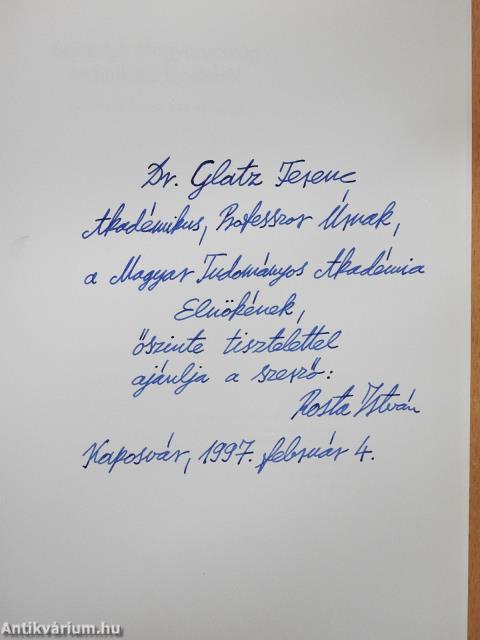 Dr. Glatz Ferenc
Akadémikus, Professzor Úrnak,
a Magyar Tudományos Akadémia
Elnökének,
őszinte tisztelettel
ajánlja a szerző:
Rosta István
Kaposvár, 1997. február 4.
Antikvárium.hu